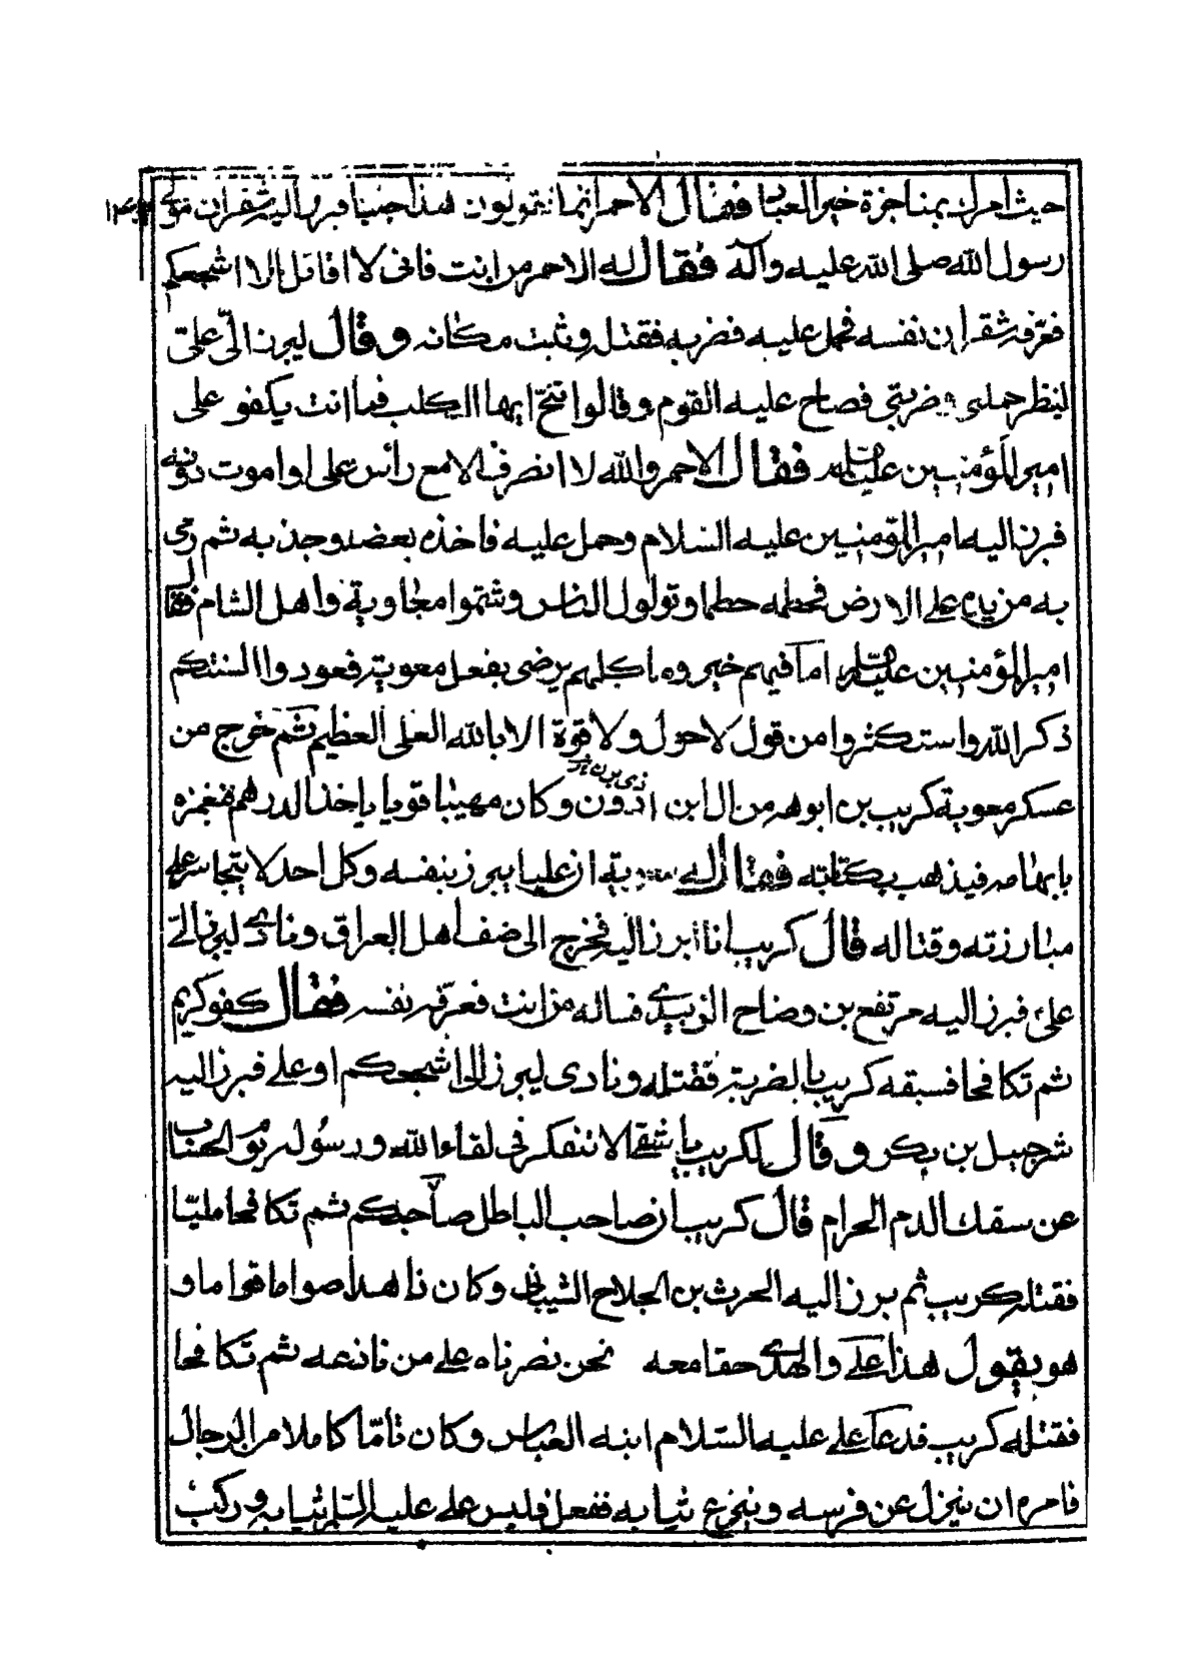 حيث امرك بمناجزة خير العباد فقال الاحمر انما تقولون هذا جبنا فبرز اليه شقران مولى
رسول الله صلى الله عليه وآله فقال له الاحمر من انت فانى لا اقاتل الا اشجعكم
فعرفه شقران نفسه فحمل عليه فضربه فقتله وثبت مكانه وقال ليبرز الىّ علىّ
لينظر حملتى وضربتى فصاح عليه القوم وقالوا تنحّ ايها الكلب فما انت بكفو على
امير المؤمنين عليه السلم فقال الاحمر والله لا انصرف الا مع راس على او اموت دونه
فبرز اليه امير المؤمنين عليه السلام وحمل عليه فاخذه بعضده وجذبه ثم رمى
به من يده على الارض فحطمه حطما وتولول الناس وشتموا معاوية واهل الشام فقال
امير المؤمنين عليه السلم اما فيهم خير وما كلهم يرضى بفعل معوية فعودوا السنتكم
ذكر الله واستكثروا من قول لا حول ولا قوة الا بالله العلى العظيم ثم خرج من
عسكر معوية كريب بن ابوهه من ال ابن اذدون وكان مهيبا قويا ياخذ الدرهم فيغمزه
بابهامه فيذهب بكتابته فقال له معوية ان عليا يبرز بنفسه وكل احد لا يتجاسر على
مبارزته وقتاله قال كريب انا ابرز اليه فخرج الى صف اهل العراق ونادى ليبرز الىّ
علىّ فبرز اليه مرتفع بن وضاح الزبيدى فساله من انت فعرّفه نفسه فقال كفو كريم
ثم تكافحا فسبقه كريب بالضربة فقتله ونادى ليبرز الى اشجعكم او على فبرز اليه
شرجيل بن بكر وقال لكريب يا شقى الا تتفكر فى لقاء الله ورسوله يوم الحساب
عن سفك الدم الحرام قال كريب ان صاحب الباطل صاحبكم ثم تكافحا مليّا
فقتله كريب ثم برز اليه الحرث بن الجلاح الشيبانى وكان زاهدا صواما قواما و
هو يقول هذا على والهدى حقا معه نحن نصرناه على من نازعه ثم تكافحا
فقتله كريب فدعا على عليه السلام ابنه العباس وكان تامّا كاملا من الرجال
فامره ان ينزل عن فرسه وينزع ثيابه ففعل فلبس على عليه السلم ثيابه وركب